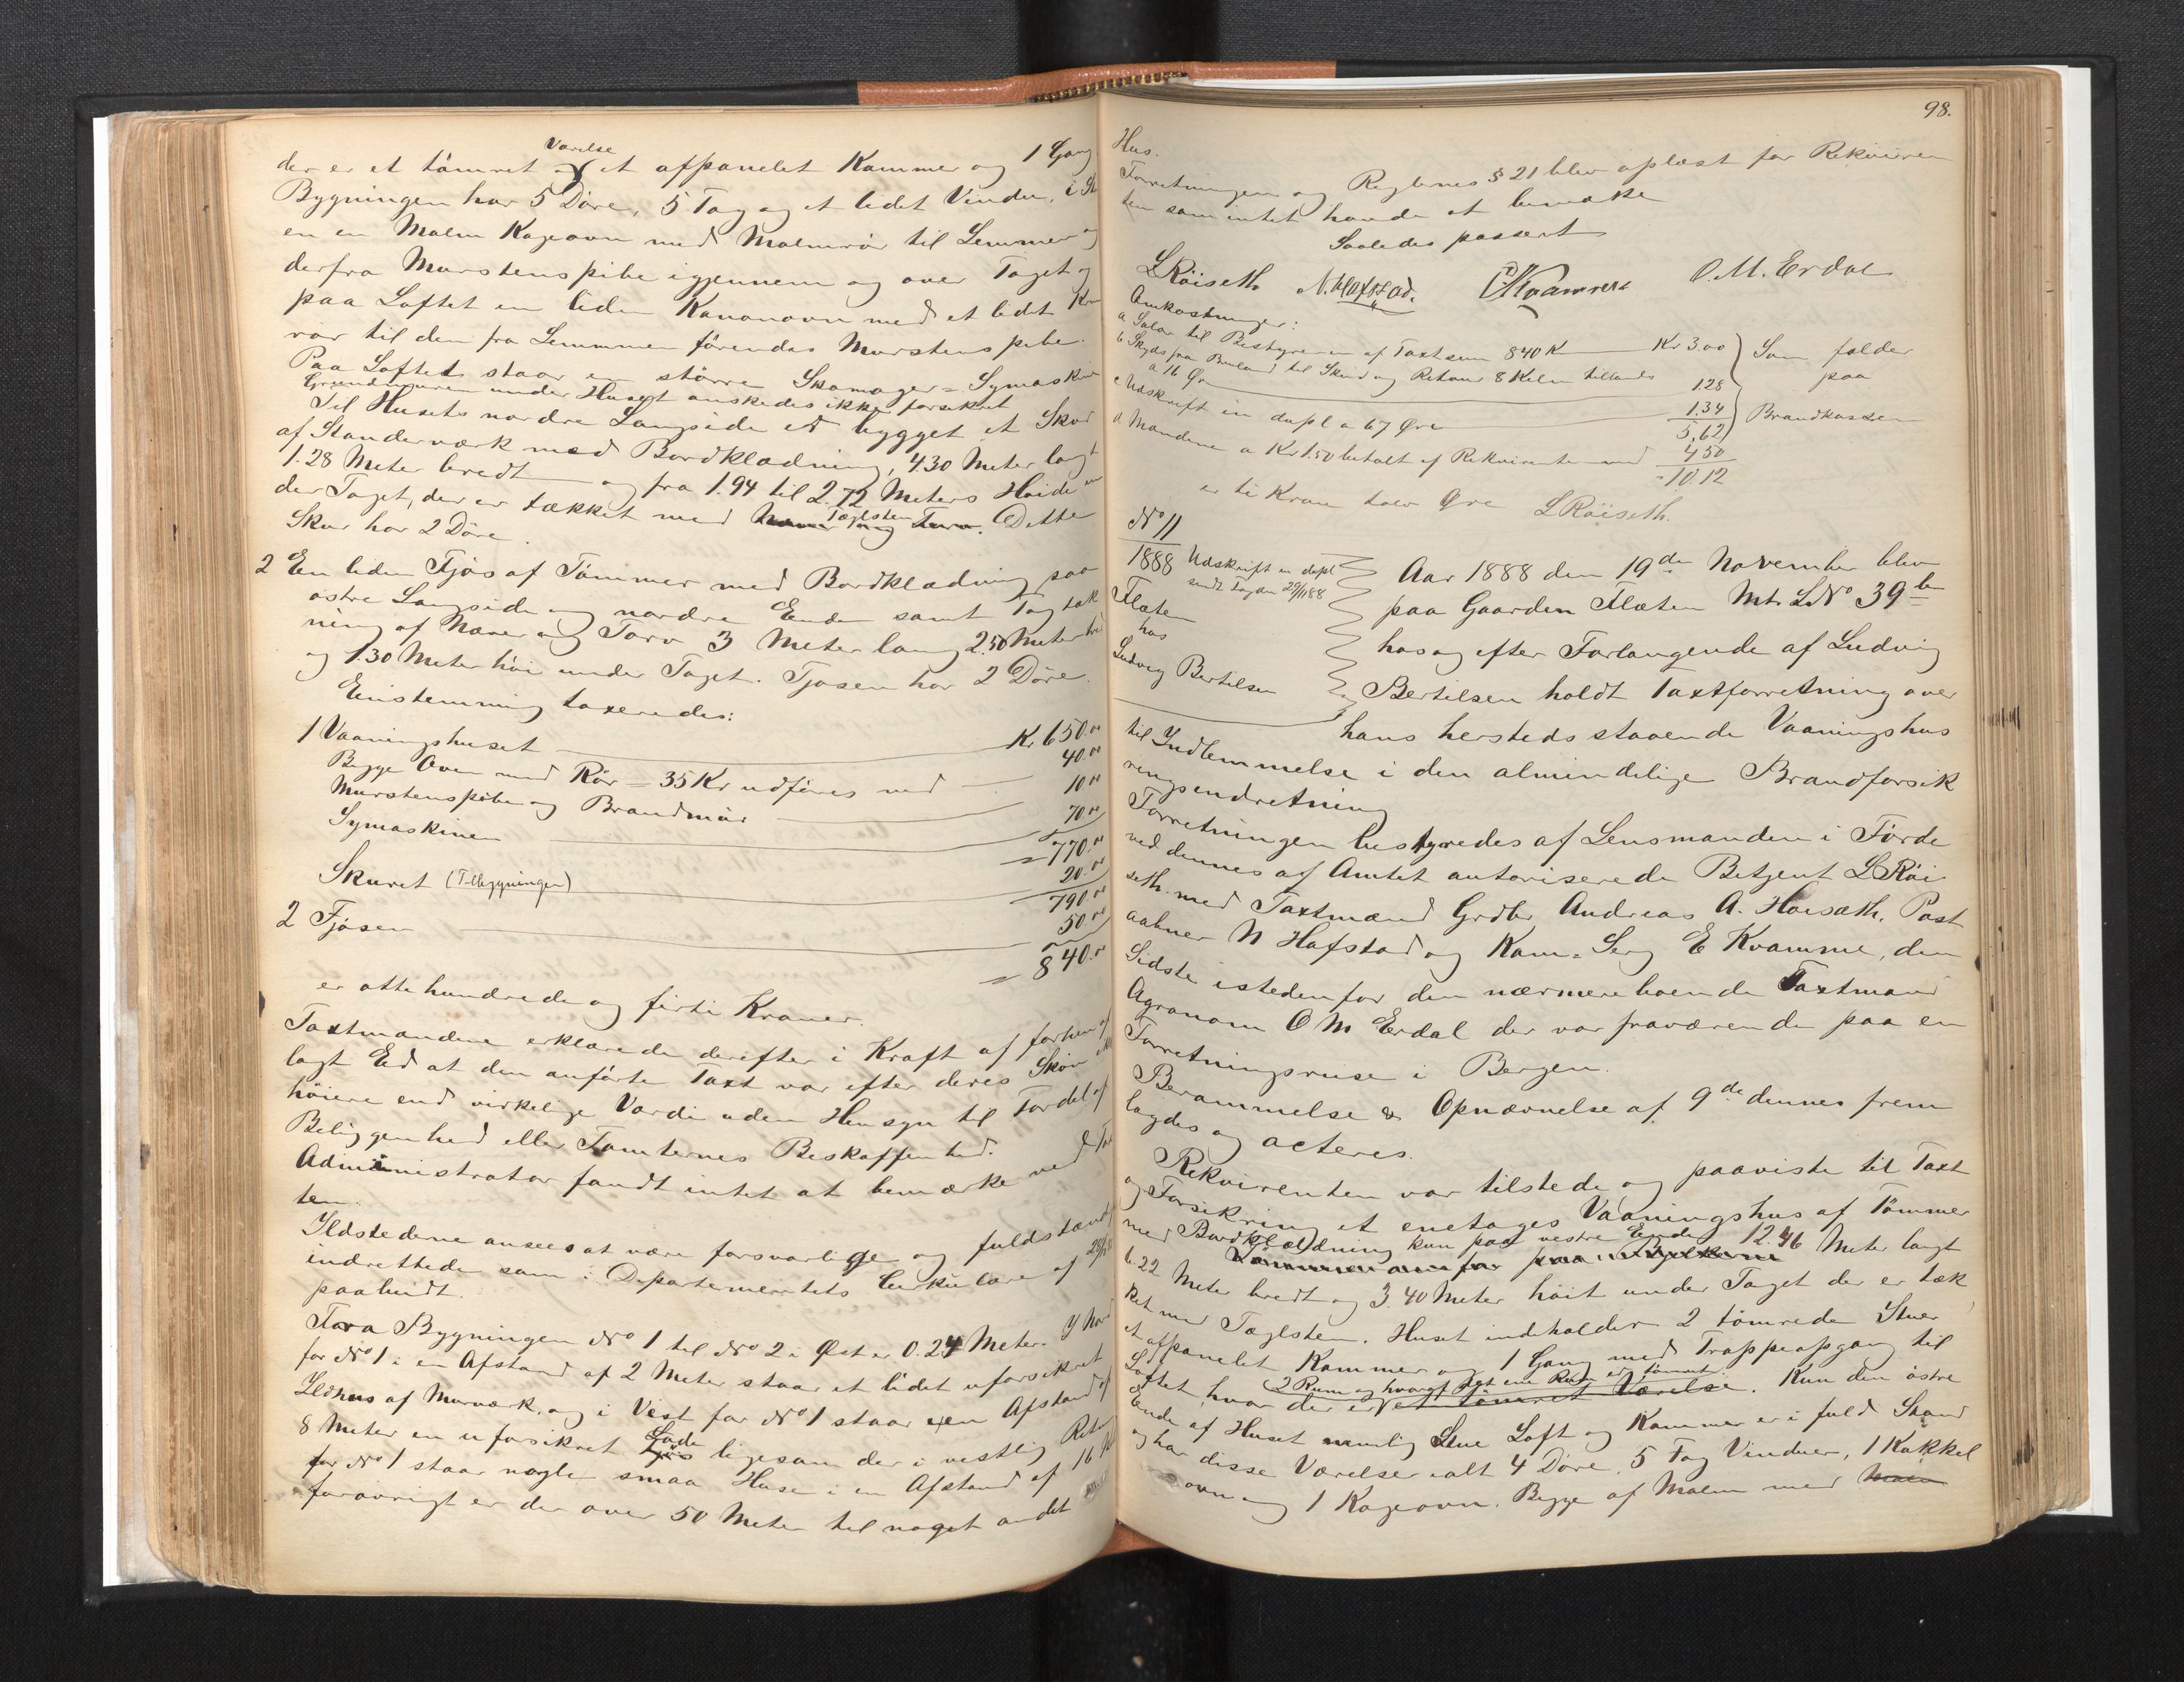 der er et tömret Værelse et afpanelet Kammer og 1 Gang
Bygningen har 5 Döre, 5 Fag og et lidet Vindu, i
en en Malm Kogeovn med Malmrör til Lemmen og
derfra Murstenspibe igjennem og over Taget og
paa Loftet en liden Kanonovn med et lidet
rör til den fra Lemmen förendes Murstenspibe.
Paa Loftet staar en större Skomager=Symaskine
Grundmuren under Huset önskedes ikke forsikret
Til Husets nordre Langside er bygget et Skur
af Standerværk med Bordklædning, 4.30 Meter langt
1.28 Meter bredt og fra 1.94 til 2.72 Meters Höide un
der Taget, der er tækket med Næver og Torv Taglsten. Dette
Skur har 2 Döre.
2 En liden Fjös af Tömmer med Bordklædning paa
östre Langside og nordre Ende samt Tagtæk
ning af Næver og Torv 3 Meter lang 2.50 Meter bred
og 1.30 Meter höi under Taget. Fjösen har 2 Döre.
Enstemmig taxeredes:
1 Vaaningshuset Kr 650.00
Begge Ovne med Rör = 35 Kr udföres med 40.00
Murstenspibe og Brandmur 10.00
Symaskinen 70.00
= 770.00
Skuret (Tilbygningen) 20.00
790.00
2 Fjösen 50.00
= 840.00
er otte hundrede og firti Kroner.
Taxtmændene erklærede derefter i Kraft af forhen af
lagt Ed at den anförte Taxt var efter deres Skjön ikke
höiere end virkelige Værdi uden Hensyn til Fordel af
Beliggenhed eller Tomternes Beskaffenhed.
Administrator fandt intet at bemærke ved Tax
ten.
Ildstederne ansees at være forsvarlige og fuldstændig
indrettede som i Departementets Cirkulære af
paabudt.
Fra Bygningen No 1 til No 2 i Öst er 0.24 Meter. I Nord
for No 1 i en Afstand af 2 Meter staar et lidet uforsikret
Ildhus af Murværk, og i Vest for No 1 staar i en Afstand af
8 Meter en uforsikret Lade ligesom der i vestlig Retn
for No 1 staar nogle smaa Huse i en Afstand af 16 M
forövrigt er der over 50 Meter til noget andet
98.
Hus.
Forretningen og Reglernes § 21 blev oplæst for Rekviren
ten som intet havde at bemærke
Saaledes passert
LRöiseth N. Hafstad. EKvamme O. M. Erdal
Omkostninger:
a Salar til Bestyreren af Taxtsum 840 Kr Kr 3.00 } Som falder
b Skyds fra Bruland til Skei og Retour 8 Kilm tillands
a 16 Öre 1.28 paa
c Udskrift in dupl a 67 Öre 1.34 } Brandkassen
5.62
d Mændene a Kr 1.50 betalt af Rekvirenten med 4.50
= 10.12
er ti Kroner tolv Öre LRöiseth.
No 11
1888 Udskrift in dupl
sendt Fogden 29/11 88
Flaten
hos
Ludvig Bertelsen
Aar 1888 den 19de November blev
paa Gaarden Flaten Mt. LNo 39 b
hos og efter Forlangende af Ludvig
Bertilsen holdt Taxtforretning over
hans hersteds staaende Vaaningshus
til Indlemmelse i den almindelige Brandforsik
ringsindretning
Forretningen bestyredes af Lensmanden i Förde
ved dennes af Amtet autoriserede Betjent L Röi
seth med Taxtmænd Grdbr Andreas A. Hovsæth, Post
aabner N Hafstad og Kom=Serg E Kvamme, den
Sidste istedenfor den nærmereboende Taxtmand
Agronom O M Erdal der var fraværende paa en
Forretningsreise i Bergen.
Berammelse & Opnævnelse af 9de dennes frem
lagdes og acteres.
Rekvirenten var tilstede og paaviste til Taxt
og Forsikring et enetages Vaaningshus af Tömmer
med Bordklædning kun paa vestre Ende 12.46 Meter langt
6.22 Meter bredt og 3.40 Meter höit under Taget der er tæk
ket med Taglsten. Huset indeholder 2 tömrede Stuer
et afpanelet Kammer og 1 Gang med Trappeopgang til
Loftet, hvor der er 2 Rum og hvoraf det ene Rum er tömret et tömret Værelse. Kun den östre
Ende af Huset nemlig Stue Loft og Kammer er i fuld Stand
og har disse Værelser ialt 4 Döre, 5 Fag Vinduer, 1 Kakkel
ovn og 1 Kogeovn. Begge af Malm med